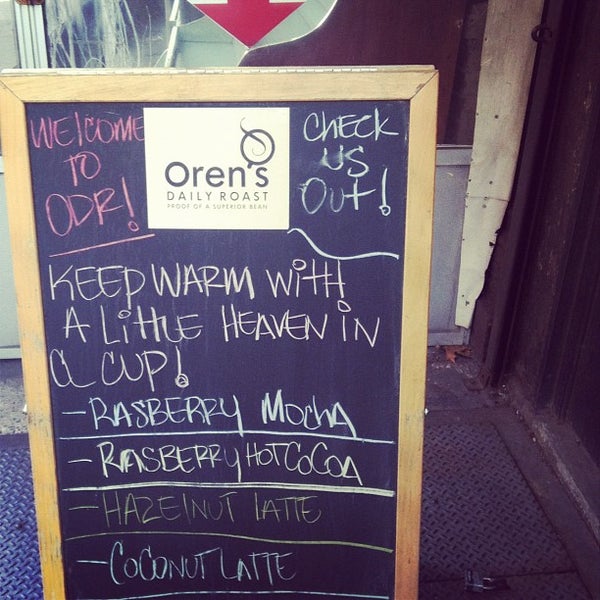 WELCOME
TO
ODR!
Oren's
DAILY ROAST
PROOF OF A SUPERIOR BEAN
CHECK
US
OUT!
KEEP WARM WITH
A LITTLE HEAVEN IN
A CUP!
- RASBERRY MOCHA
- RASBERRY HOT COCOA
- HAZELNUT LATTE
- COCONUT LATTE